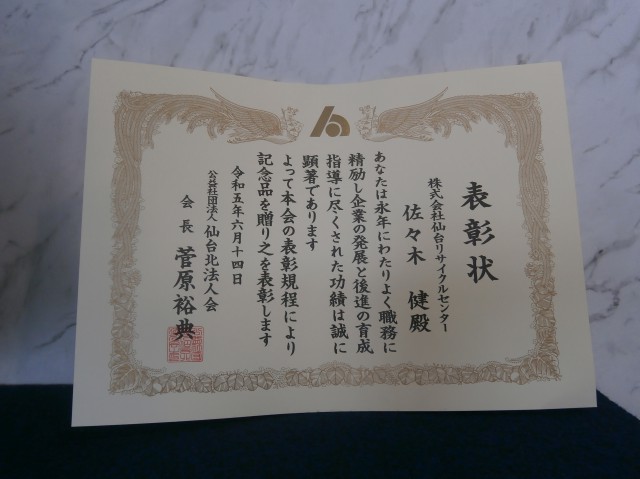 表彰状
株式会社仙台リサイクルセンター
佐々木 健殿
あなたは永年にわたりよく職務に
精励し企業の発展と後進の育成
指導に尽くされた功績は誠に
顕著であります
よって本会の表彰規程により
記念品を贈り之を表彰します
令和五年六月十四日
公益社団法人 仙台北法人会
会長 菅原裕典